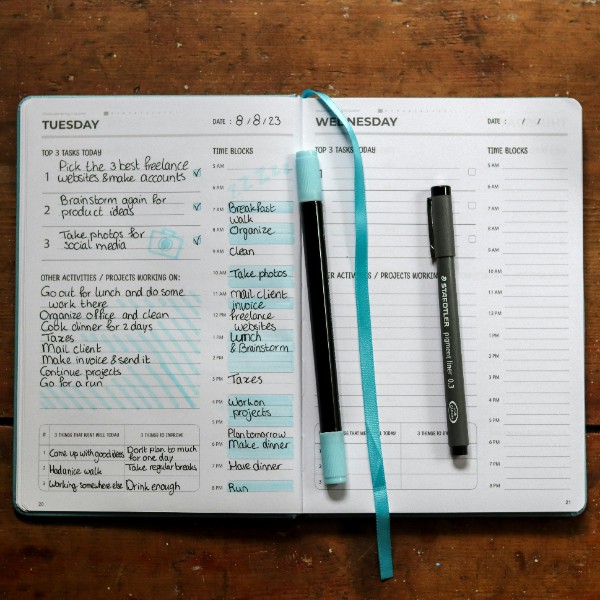 TUESDAY
DATE : 8/8/23
TOP 3 TASKS TODAY
1 Pick the 3 best freelance
websites & make accounts
2 Brainstorm again for
product ideas
3 Take photos for
social media
OTHER ACTIVITIES / PROJECTS WORKING ON:
Go out for lunch and do some
work there
Organize office and clean
Cook dinner for 2 days
Taxes
Mail client
Make invoice & send it
Continue projects
Go for a run
# 3 THINGS THAT WENT WELL TODAY 3 THINGS TO IMPROVE
Came up with good ideas Don't plan to much
for one day
Had a nice walk Take regular breaks
Working somewhere else Drink enough
20
TIME BLOCKS
5 AM
6 AM
7 AM Breakfast
walk
8 AM Organize
9 AM Clean
10 AM Take photos
11 AM Mail client
invoice
12 PM freelance
websites
1 PM Lunch
2 PM & Brainstorm
3 PM Taxes
4 PM Work on
5 PM projects
Plan tomorrow
6 PM Make dinner
7 PM Have dinner
8 PM Run
WEDNESDAY
DATE : / /
TOP 3 TASKS TODAY
OTHER ACTIVITIES / PROJECTS WORKING
3 THINGS TO IMPROVE
TIME BLOCKS
5 AM
6 AM
7 AM
8 AM
9 AM
10 AM
11 AM
12 PM
1 PM
2 PM
3 PM
4 PM
5 PM
6 PM
7 PM
8 PM
21
STAEDTLER
pigment liner 0.3